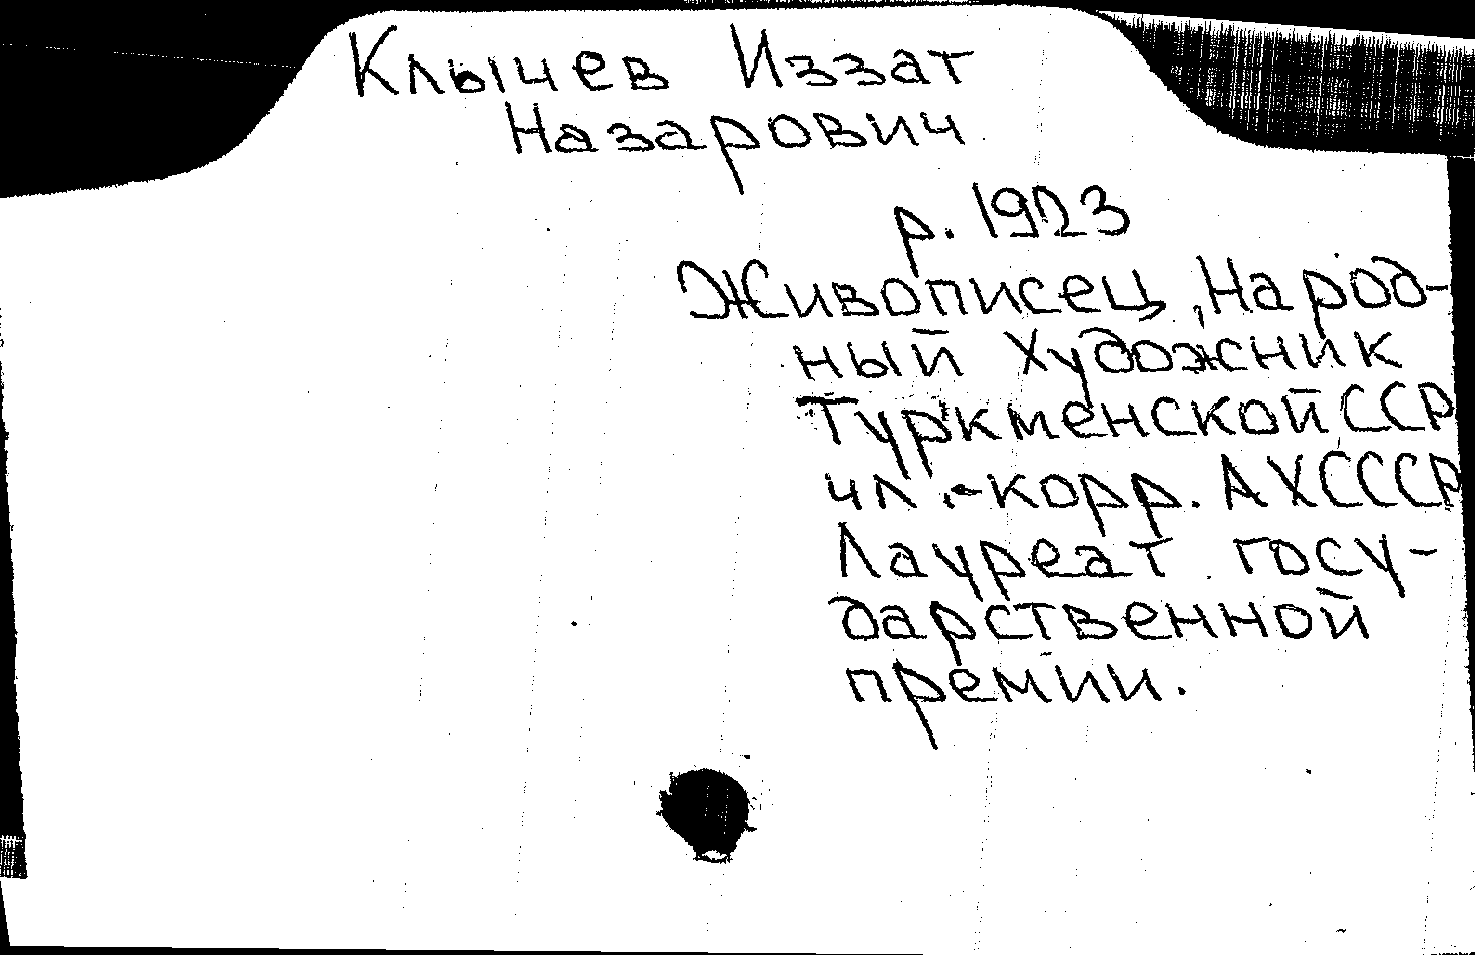 Клычев Иззат
Назарович
р. 1923
Живописец, Народ-
ный художник
Туркменской ССР
чл.-корр. АХСССР
Лауреат госу-
дарственной
премии.